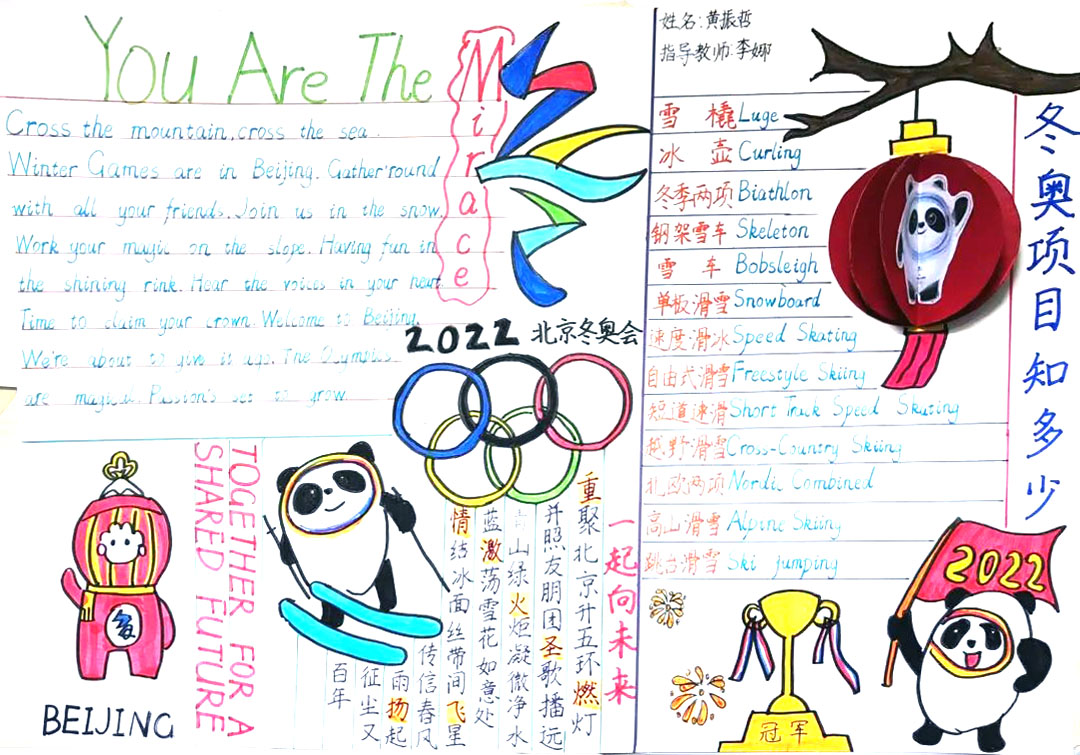 You Are The Mirace
Cross the mountain, cross the sea.
Winter Games are in Beijing. Gather 'round
with all your friends. Join us in the snow.
Work your magic on the slope. Having fun in
the shining rink. Hear the voices in your heart
Time to claim your crown. Welcome to Beijing.
We're about to give it ups. The Olympics
are magical. Passion's set to grow.
2022 北京冬奥会
BEIJING
TOGETHER FOR A
SHARED FUTURE
一起向未来
重聚北京升五环燃灯
并照友朋团圣歌播远
青山绿火炬凝微净水
蓝激荡雪花如意处
情结冰面丝带间飞星
传信春风
雨扬起
征尘又
百年
姓名:黄振哲
指导教师:李娜
冬奥项目知多少
雪橇 Luge
冰壶 Curling
冬季两项 Biathlon
钢架雪车 Skeleton
雪车 Bobsleigh
单板滑雪 Snowboard
速度滑冰 Speed Skating
自由式滑雪 Freestyle Skiing
短道速滑 Short Track Speed Skating
越野滑雪 Cross-Country Skiing
北欧两项 Nordic Combined
高山滑雪 Alpine Skiing
跳台滑雪 Ski jumping
2022
冠军